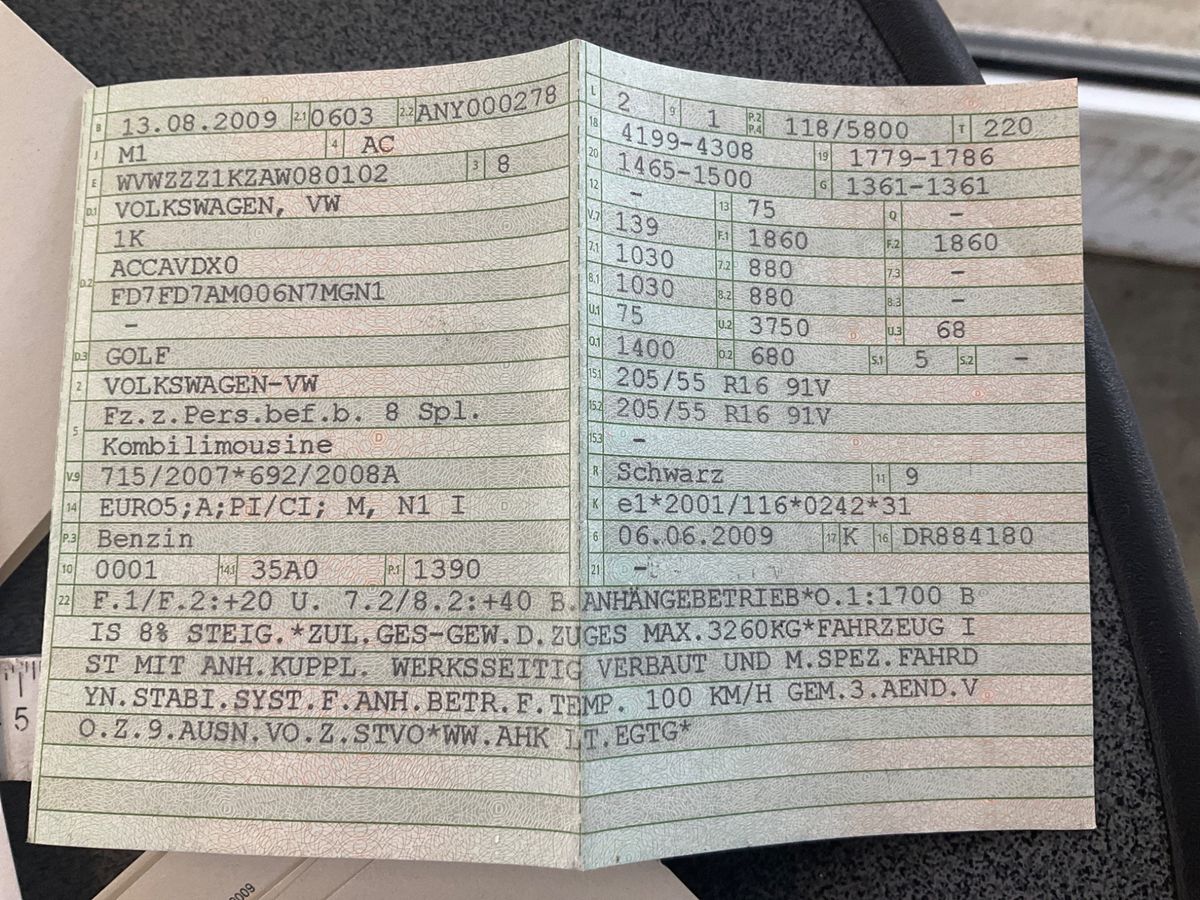 B 13.08.2009 2.1 0603 2.2 ANY000278
J M1 4 AC
E WVWZZZ1KZAW080102 3 8
D.1 VOLKSWAGEN, VW
1K
D.2 ACCAVDX0
FD7FD7AM006N7MGN1
–
D.3 GOLF
2 VOLKSWAGEN-VW
5 Fz.z.Pers.bef.b. 8 Spl.
Kombilimousine
V.9 715/2007*692/2008A
14 EURO5;A;PI/CI; M, N1 I
P.3 Benzin
10 0001 14.1 35A0 P.1 1390
L 2 9 1 P.2 P.4 118/5800 T 220
18 4199-4308 19 1779-1786
20 1465-1500 G 1361-1361
12 – 13 75 Q –
V.7 139 F.1 1860 F.2 1860
7.1 1030 7.2 880 7.3 –
8.1 1030 8.2 880 8.3 –
U.1 75 U.2 3750 U.3 68
O.1 1400 O.2 680 S.1 5 S.2 –
15.1 205/55 R16 91V
15.2 205/55 R16 91V
15.3 –
R Schwarz 11 9
K e1*2001/116*0242*31
6 06.06.2009 17 K 16 DR884180
21 –
22 F.1/F.2:+20 U. 7.2/8.2:+40 B.ANHÄNGEBETRIEB*O.1:1700 B
IS 8% STEIG.*ZUL.GES-GEW.D.ZUGES MAX.3260KG*FAHRZEUG I
ST MIT ANH.KUPPL. WERKSSEITIG VERBAUT UND M.SPEZ.FAHRD
YN.STABI.SYST.F.ANH.BETR.F.TEMP. 100 KM/H GEM.3.AEND.V
O.Z.9.AUSN.VO.Z.STVO*WW.AHK LT.EGTG*
5